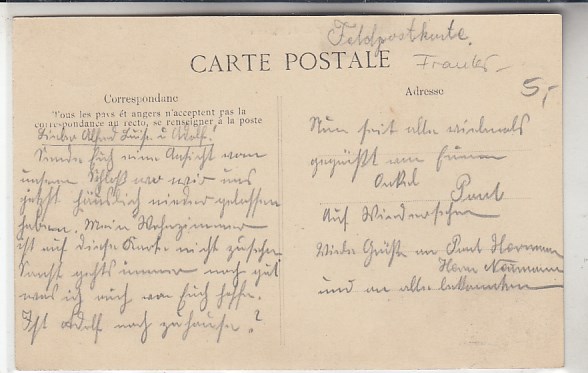 Feldpostkarte.
CARTE POSTALE
5,-
Correspondance
Adresse
Tous les pays étrangers n'acceptent pas la
correspondance au recto, se renseigner à la poste
Lieber Alfred Luise u Adolf!
Sende Euch eine Ansicht vom
unsern Schloß wo wir uns
jetzt häuslich nieder gelassen
haben. Mein Wohnzimmer
ist auf diese Karte nicht zu sehen
Sonst gehts immer noch gut
was ich auch von Euch hoffe.
Ist Adolf noch zuhause?
Nun seit alle vielmals
gegrüßt von Eurem
Onkel
Paul
Auf Wiedersehen
Viele Grüße an Paul
Herrn
und an alle bekannten